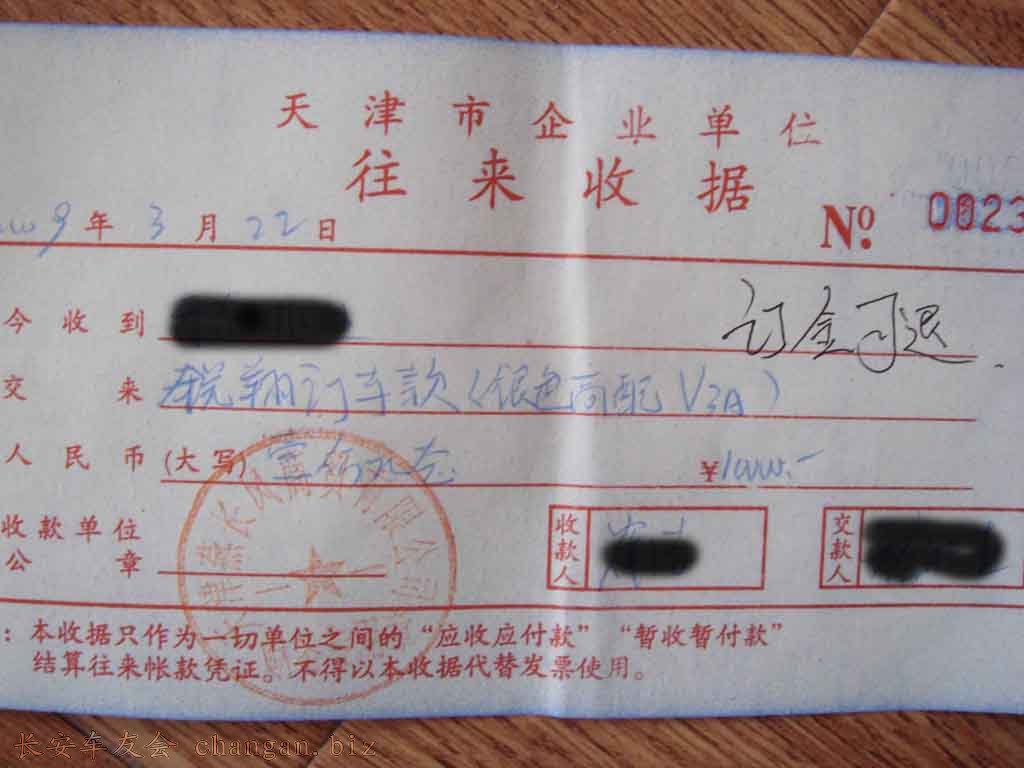 天津市企业单位
往来收据
9年3月22日
№ 0023
今收到
订金可退
交来 悦翔订车款(银色高配V3A)
人民币(大写) 壹仟元 ¥1000.-
收款单位公章
收款人
交款人
:本收据只作为一切单位之间的“应收应付款”“暂收暂付款”
结算往来帐款凭证。不得以本收据代替发票使用。
长安车友会 changan.biz